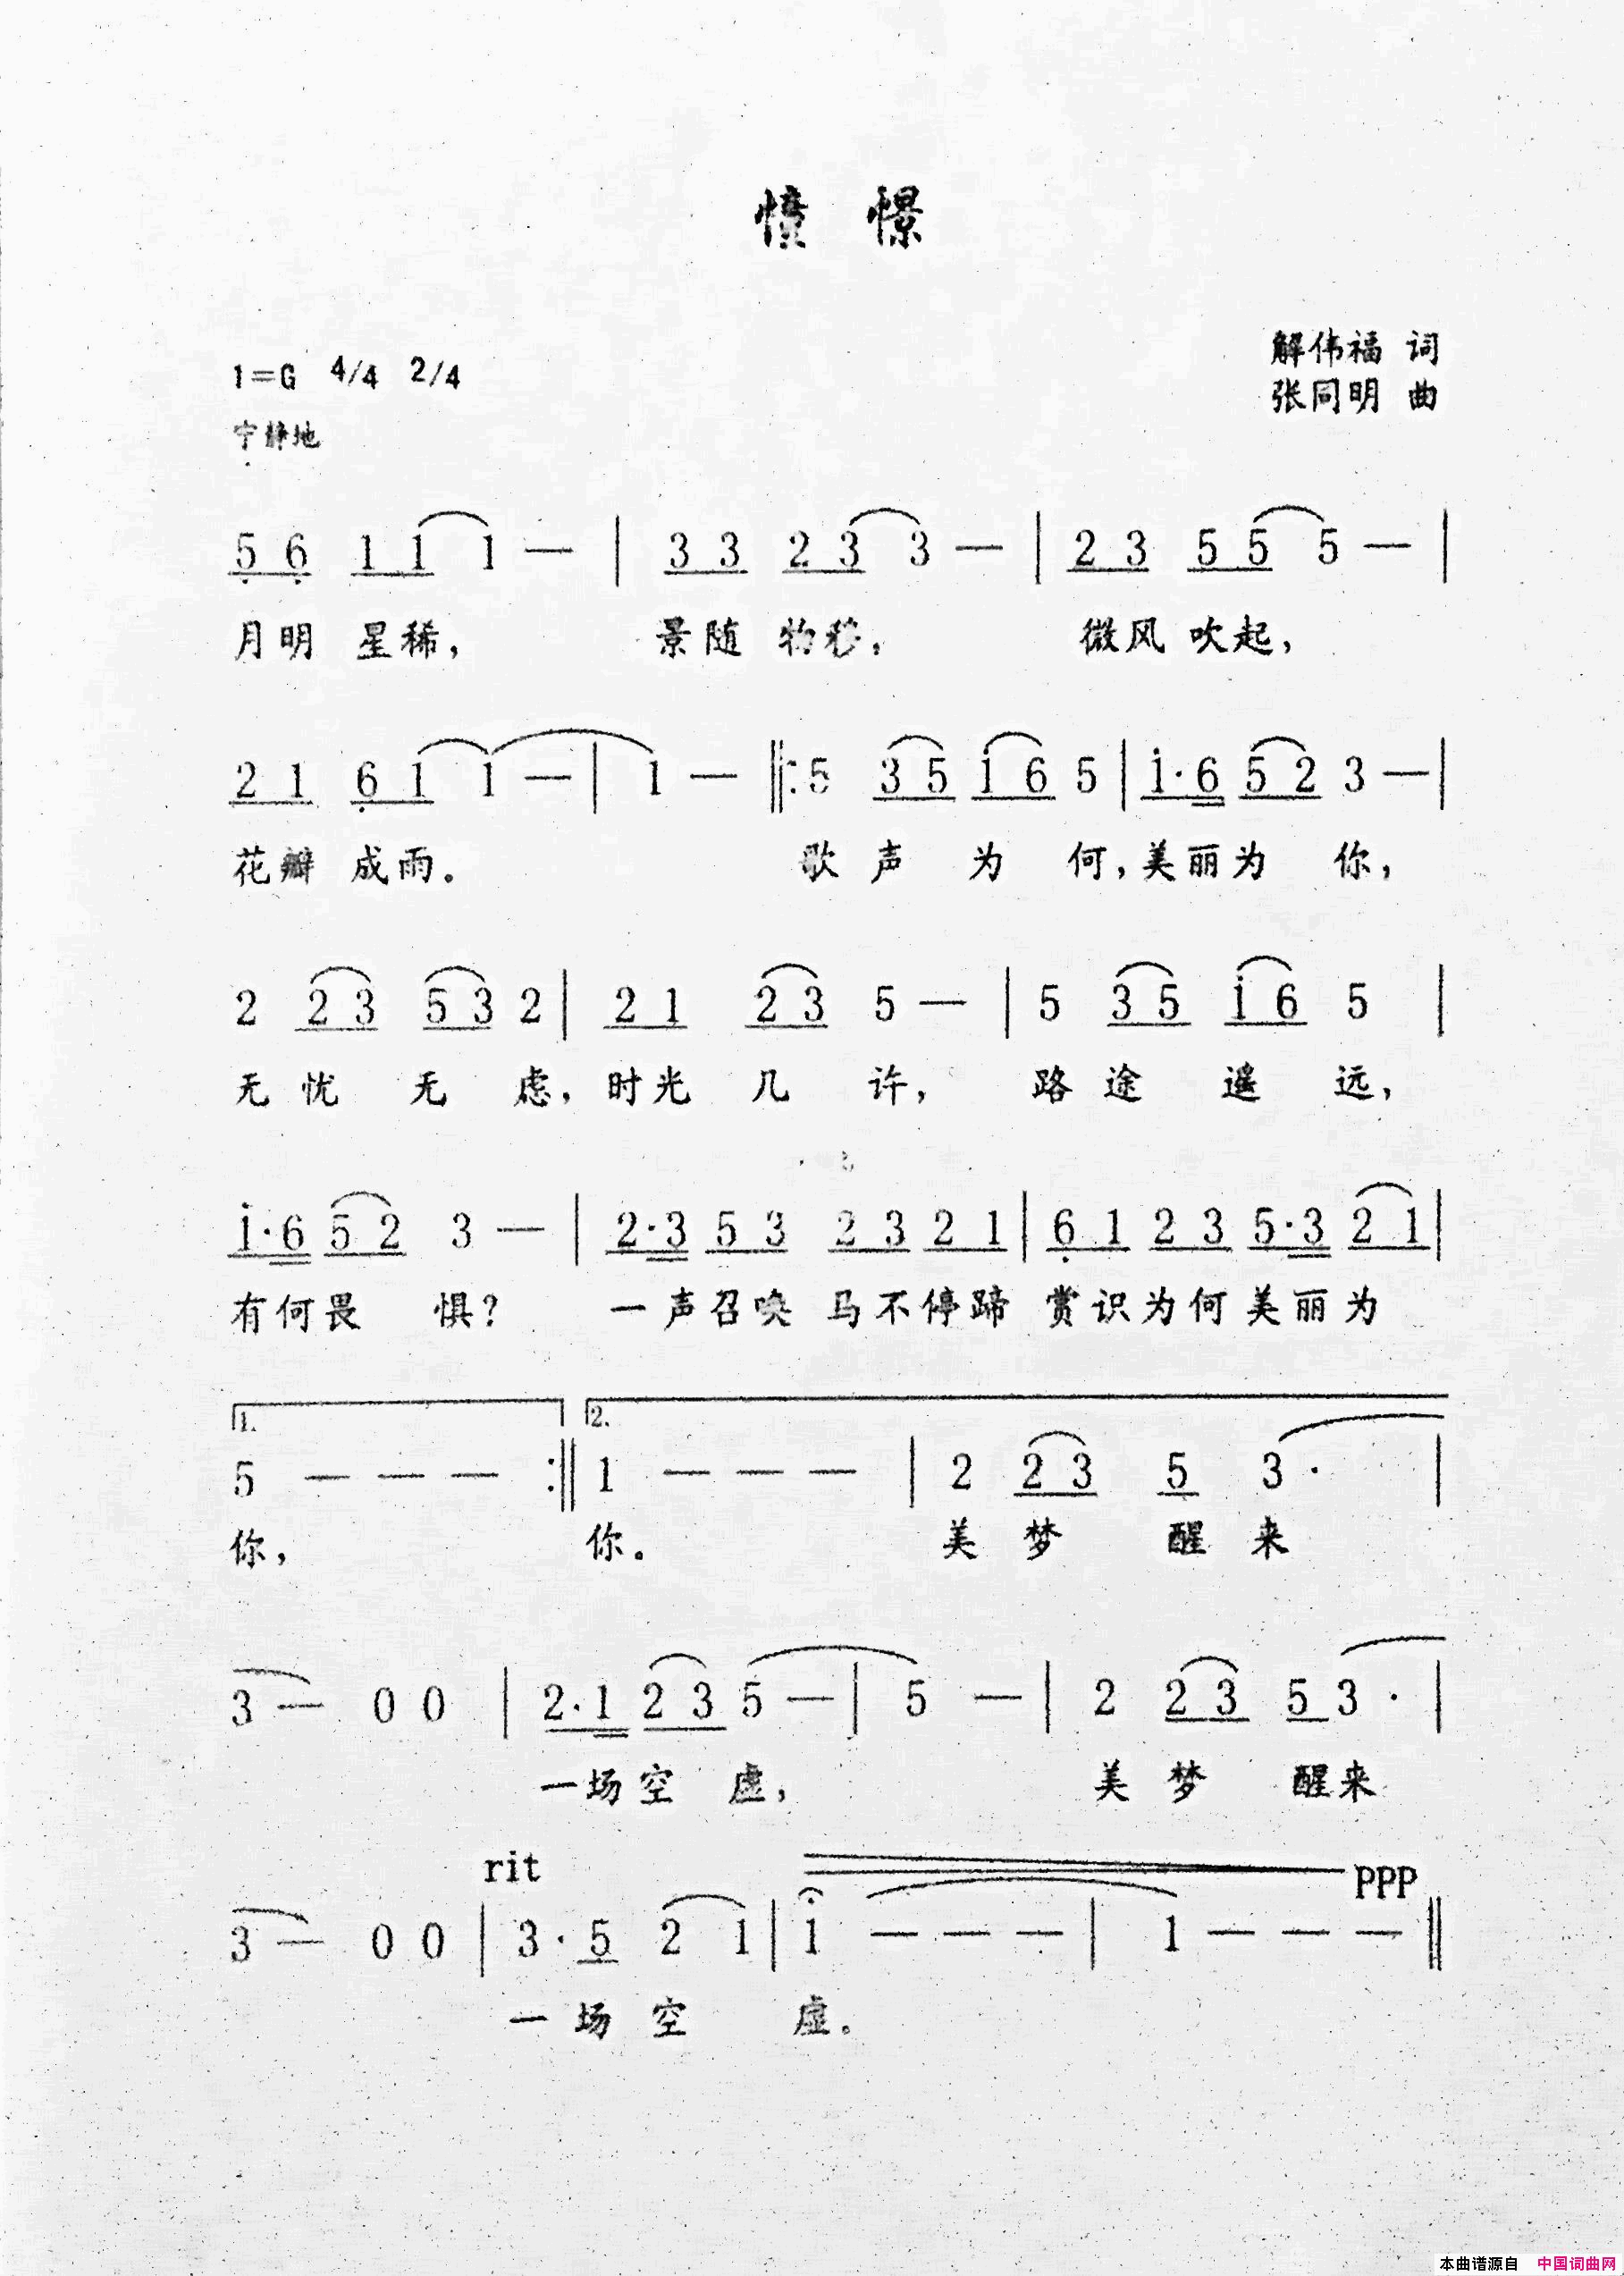 憧 憬
解伟福 词
1=G 4/4 2/4
张同明 曲
宁静地
5 6 1 1 1 — | 3 3 2 3 3 — | 2 3 5 5 5 — |
月明 星稀, 景随 物移, 微风 吹起,
2 1 6 1 1 — | 1 — ‖: 5 3 5 i 6 5 | i·6 5 2 3 — |
花瓣 成雨。 歌 声 为 何, 美丽为 你,
2 2 3 5 3 2 | 2 1 2 3 5 — | 5 3 5 i 6 5 |
无 忧 无 虑, 时光 几 许, 路 途 遥 远,
i·6 5 2 3 — | 2·3 5 3 2 3 2 1 | 6 1 2 3 5·3 2 1 |
有何畏 惧? 一声召唤 马不停蹄 赏识为何美丽为
1. 2.
5 — — — :‖ 1 — — — | 2 2 3 5 3· |
你, 你。 美 梦 醒 来
3 — 0 0 | 2·1 2 3 5 — | 5 — | 2 2 3 5 3· |
一场空 虚, 美 梦 醒来
rit ppp
3 — 0 0 | 3·5 2 1 | 1 — — — | 1 — — — ‖
一 场 空 虚。
本曲谱源自 中国词曲网